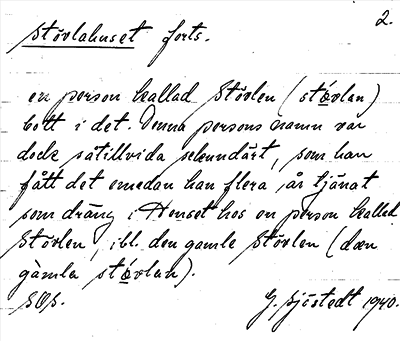 2.
Stövlahuset forts.
en person kallad Stövlen (stóvlan)
bott i det. Denna persons namn var
dock såtillvida sekundärt, som han
fått det emedan han flera år tjänat
som dräng i Henset hos en person kallad
Stövlen, ibl. den gamle Stövlen (dæn
gàmla stóvlan).
SOS.
G. Sjöstedt 1940.